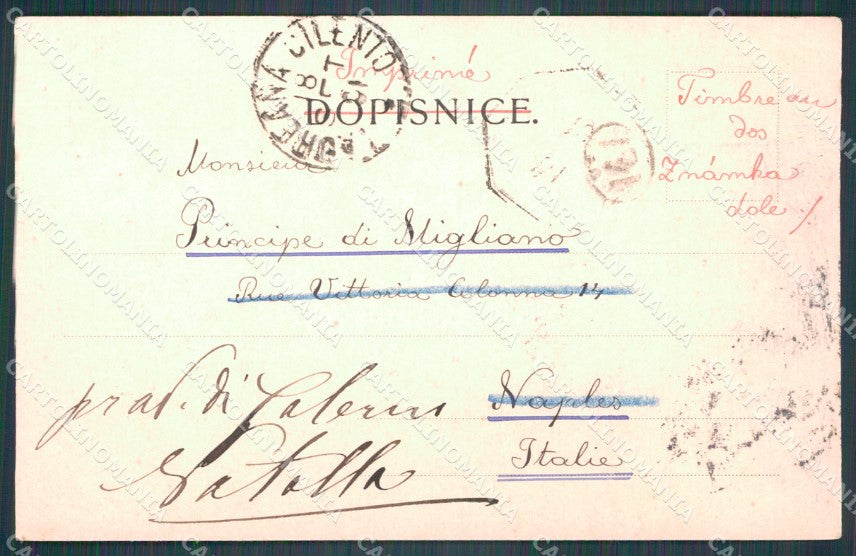 Imprimé
DOPISNICE.
Timbre au
dos
Známka
dole /
TORCHIARA CILENTO
Monsieur
Principe di Migliano
Rue Vittoria Colonna 14
Naples
Italie
prov. di Salerno
CARTOLINOMANIA